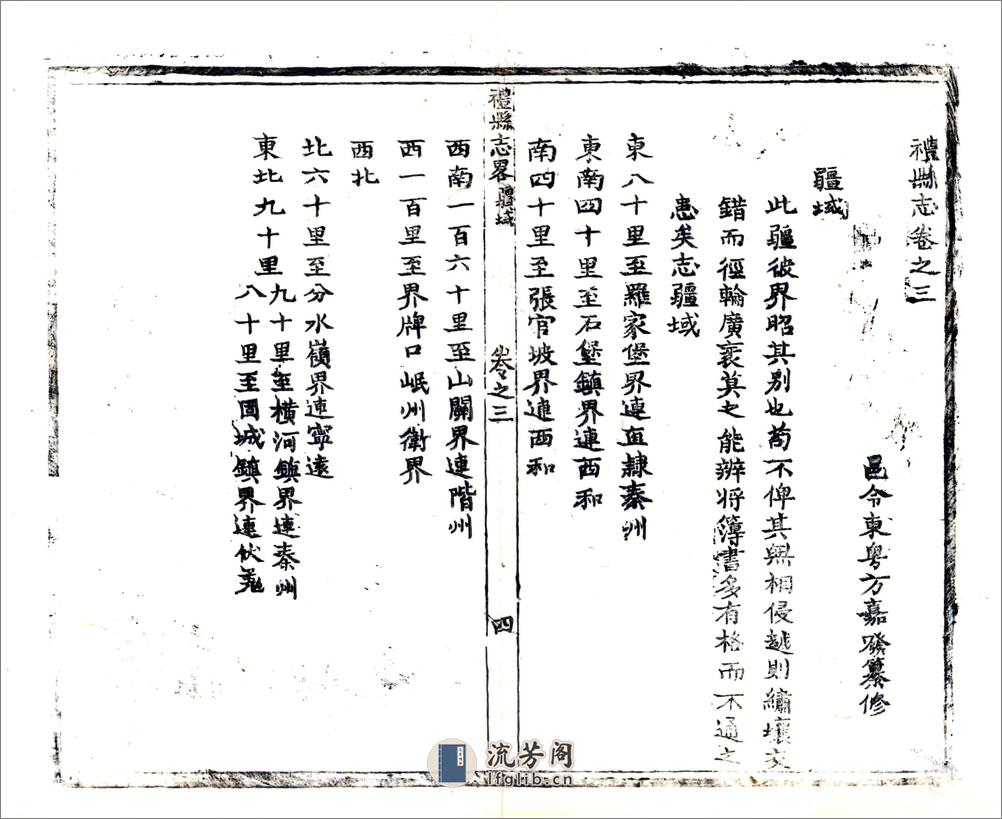 禮縣志卷之三
邑令東粤方嘉發纂修
疆域
此疆彼界昭其别也苟不俾其無相侵越則繡壤交
錯而徑輪廣袤莫之能辨將簿書多有格而不通之
患矣志疆域
東八十里至羅家堡界連直隷秦州
東南四十里至石堡鎮界連西和
南四十里至張官坡界連西和
禮縣志畧 疆域 卷之三 四
西南一百六十里至山關界連階州
西一百里至界牌口岷州衛界
西北
北六十里至分水嶺界連寧遠
東北九十里九十里至橫河鎮界連秦州
八十里至固城鎮界連伏羌
流芳阁
lfglib.cn